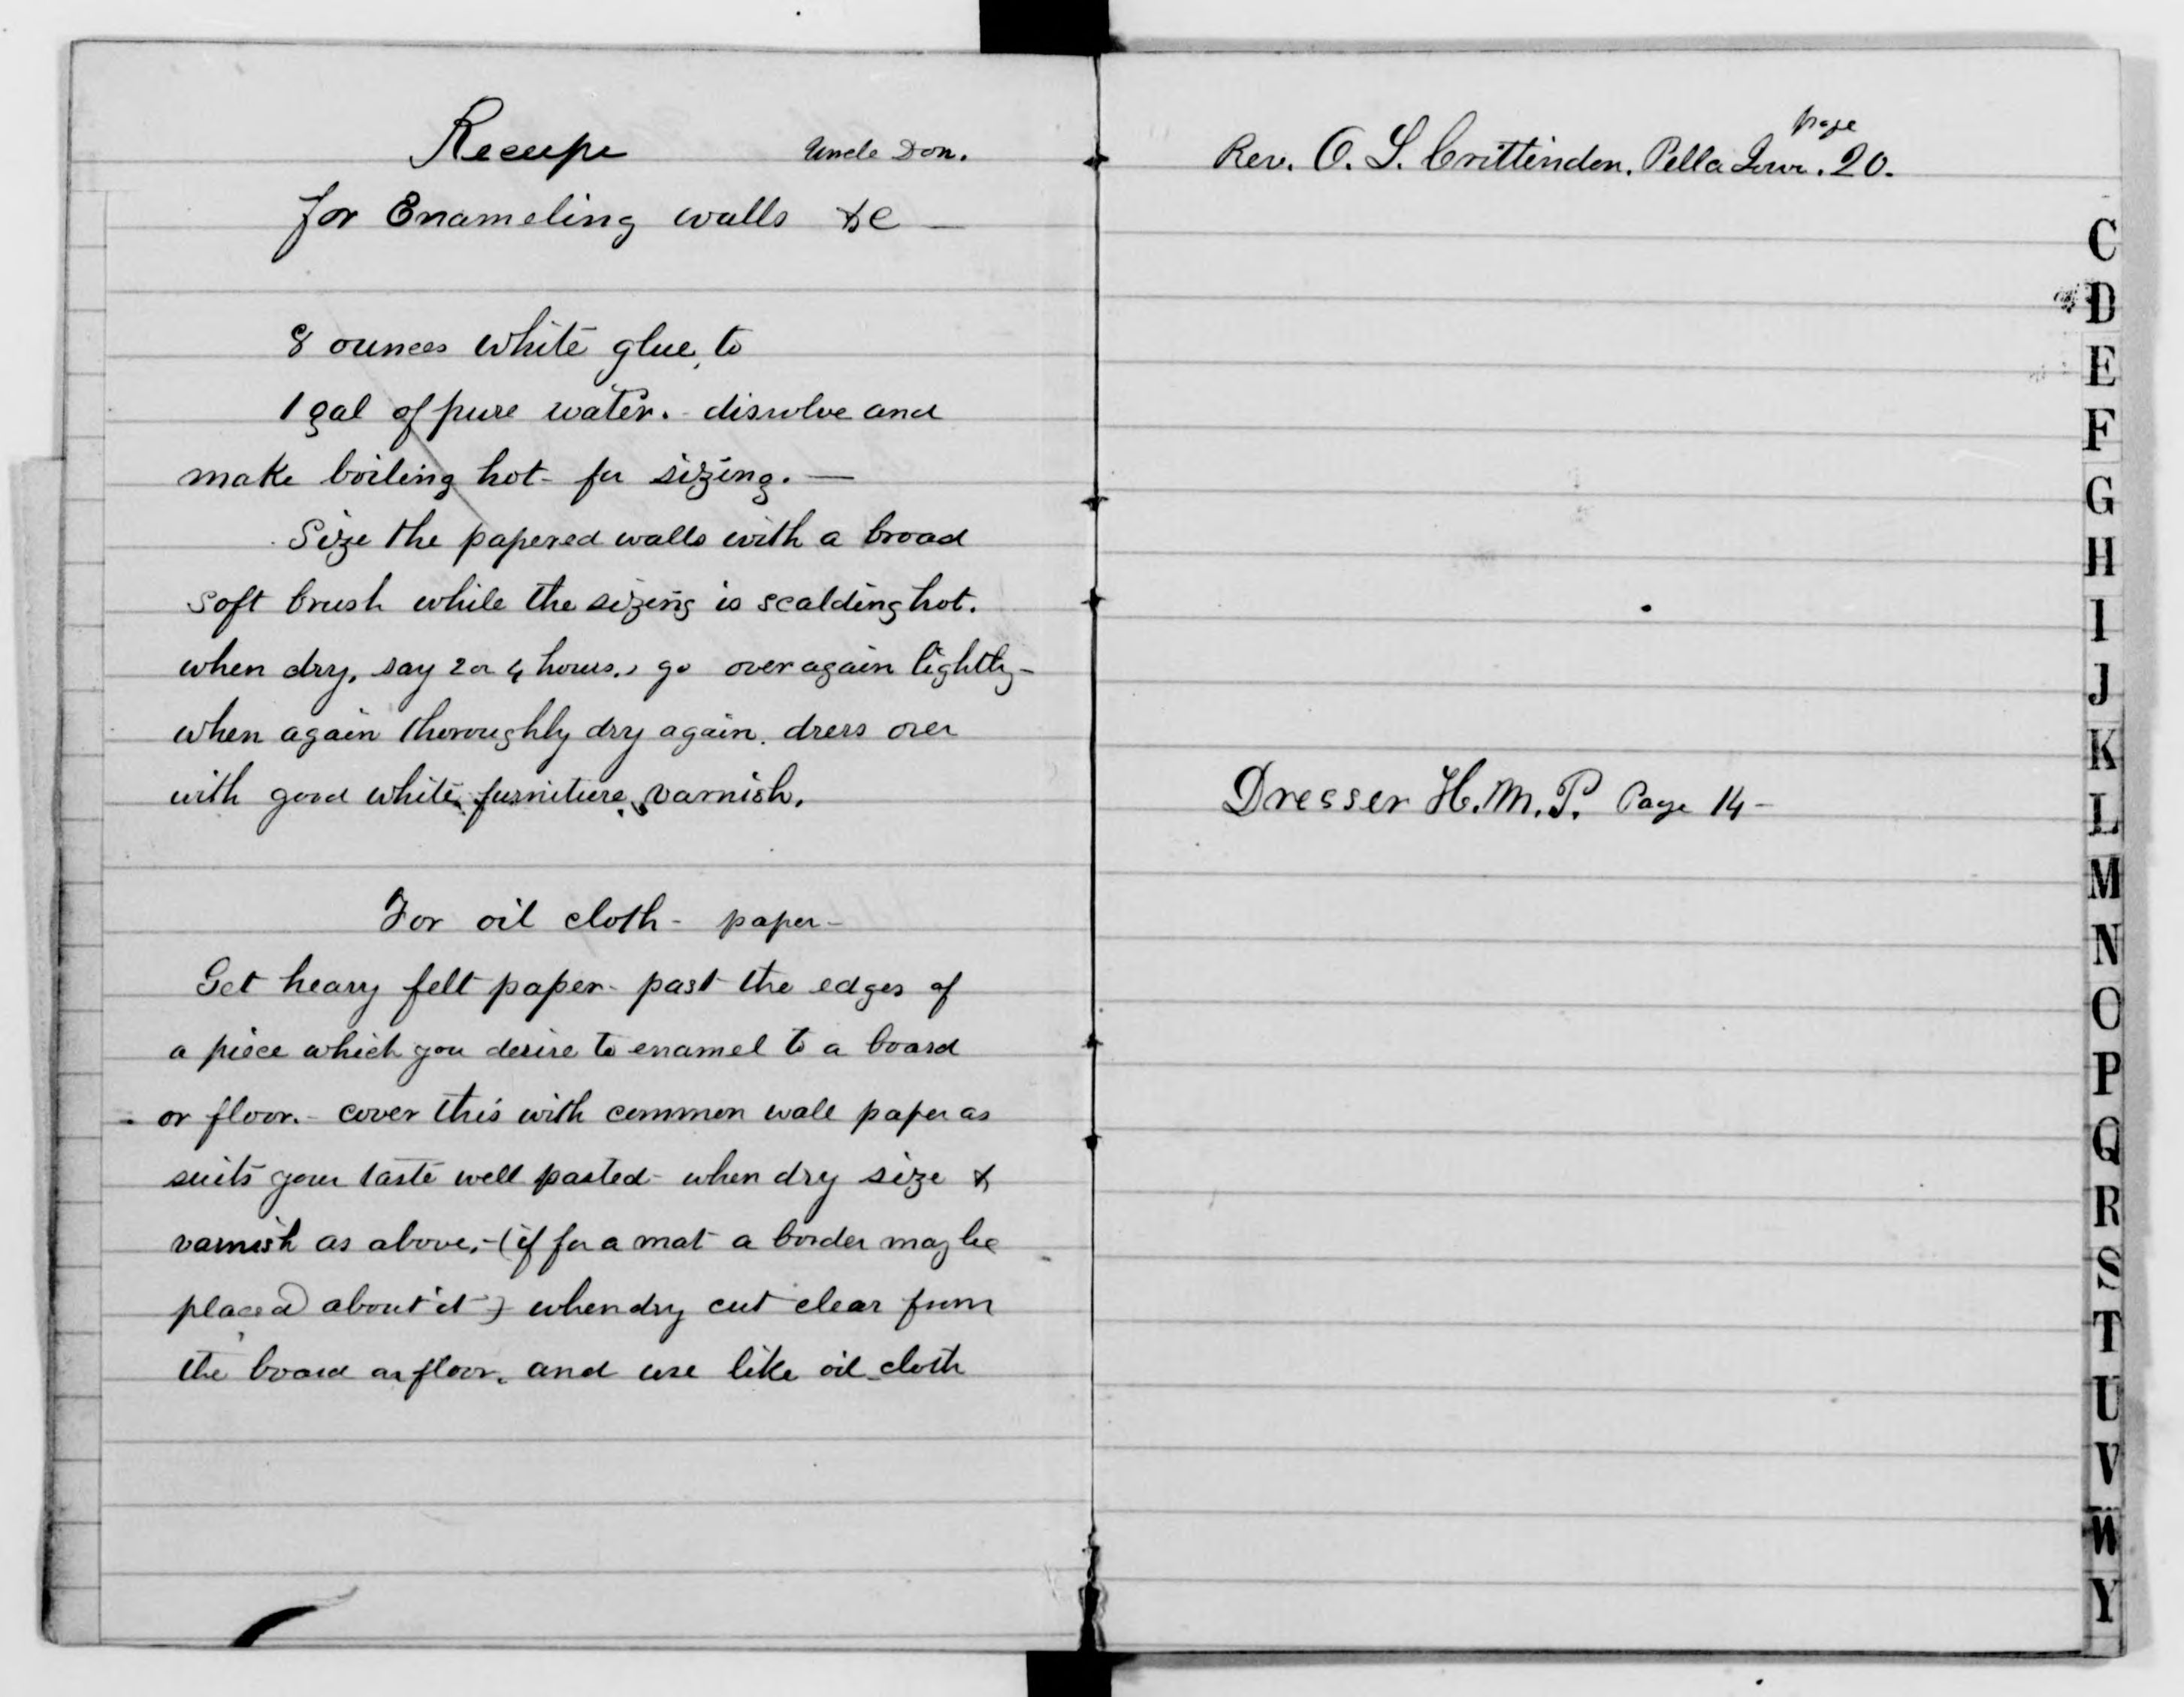 Receipe Uncle Don.
for Enameling walls &c —
8 ounces white glue, to
1 gal of pure water. - dissolve and
make boiling hot - for sizing. —
Size the papered walls with a broad
soft brush while the sizing is scalding hot.
when dry, say 2 or 4 hours., go over again lightly -
when again thoroughly dry again. dress over
with good white furniture varnish.
For oil cloth - paper -
Get heavy felt paper - past the edges of
a piece which you desire to enamel to a board
or floor. - cover this with common wall paper as
suits your taste well pasted - when dry size &
varnish as above. - (if for a mat a border may be
placed about it) when dry cut clear from
the board or floor, and use like oil cloth
page
Rev. O. S. Crittinden. Pella Iowa. 20.
Dresser H. M. P. Page 14 -
C
D
E
F
G
H
I
J
K
L
M
N
O
P
Q
R
S
T
U
V
W
Y